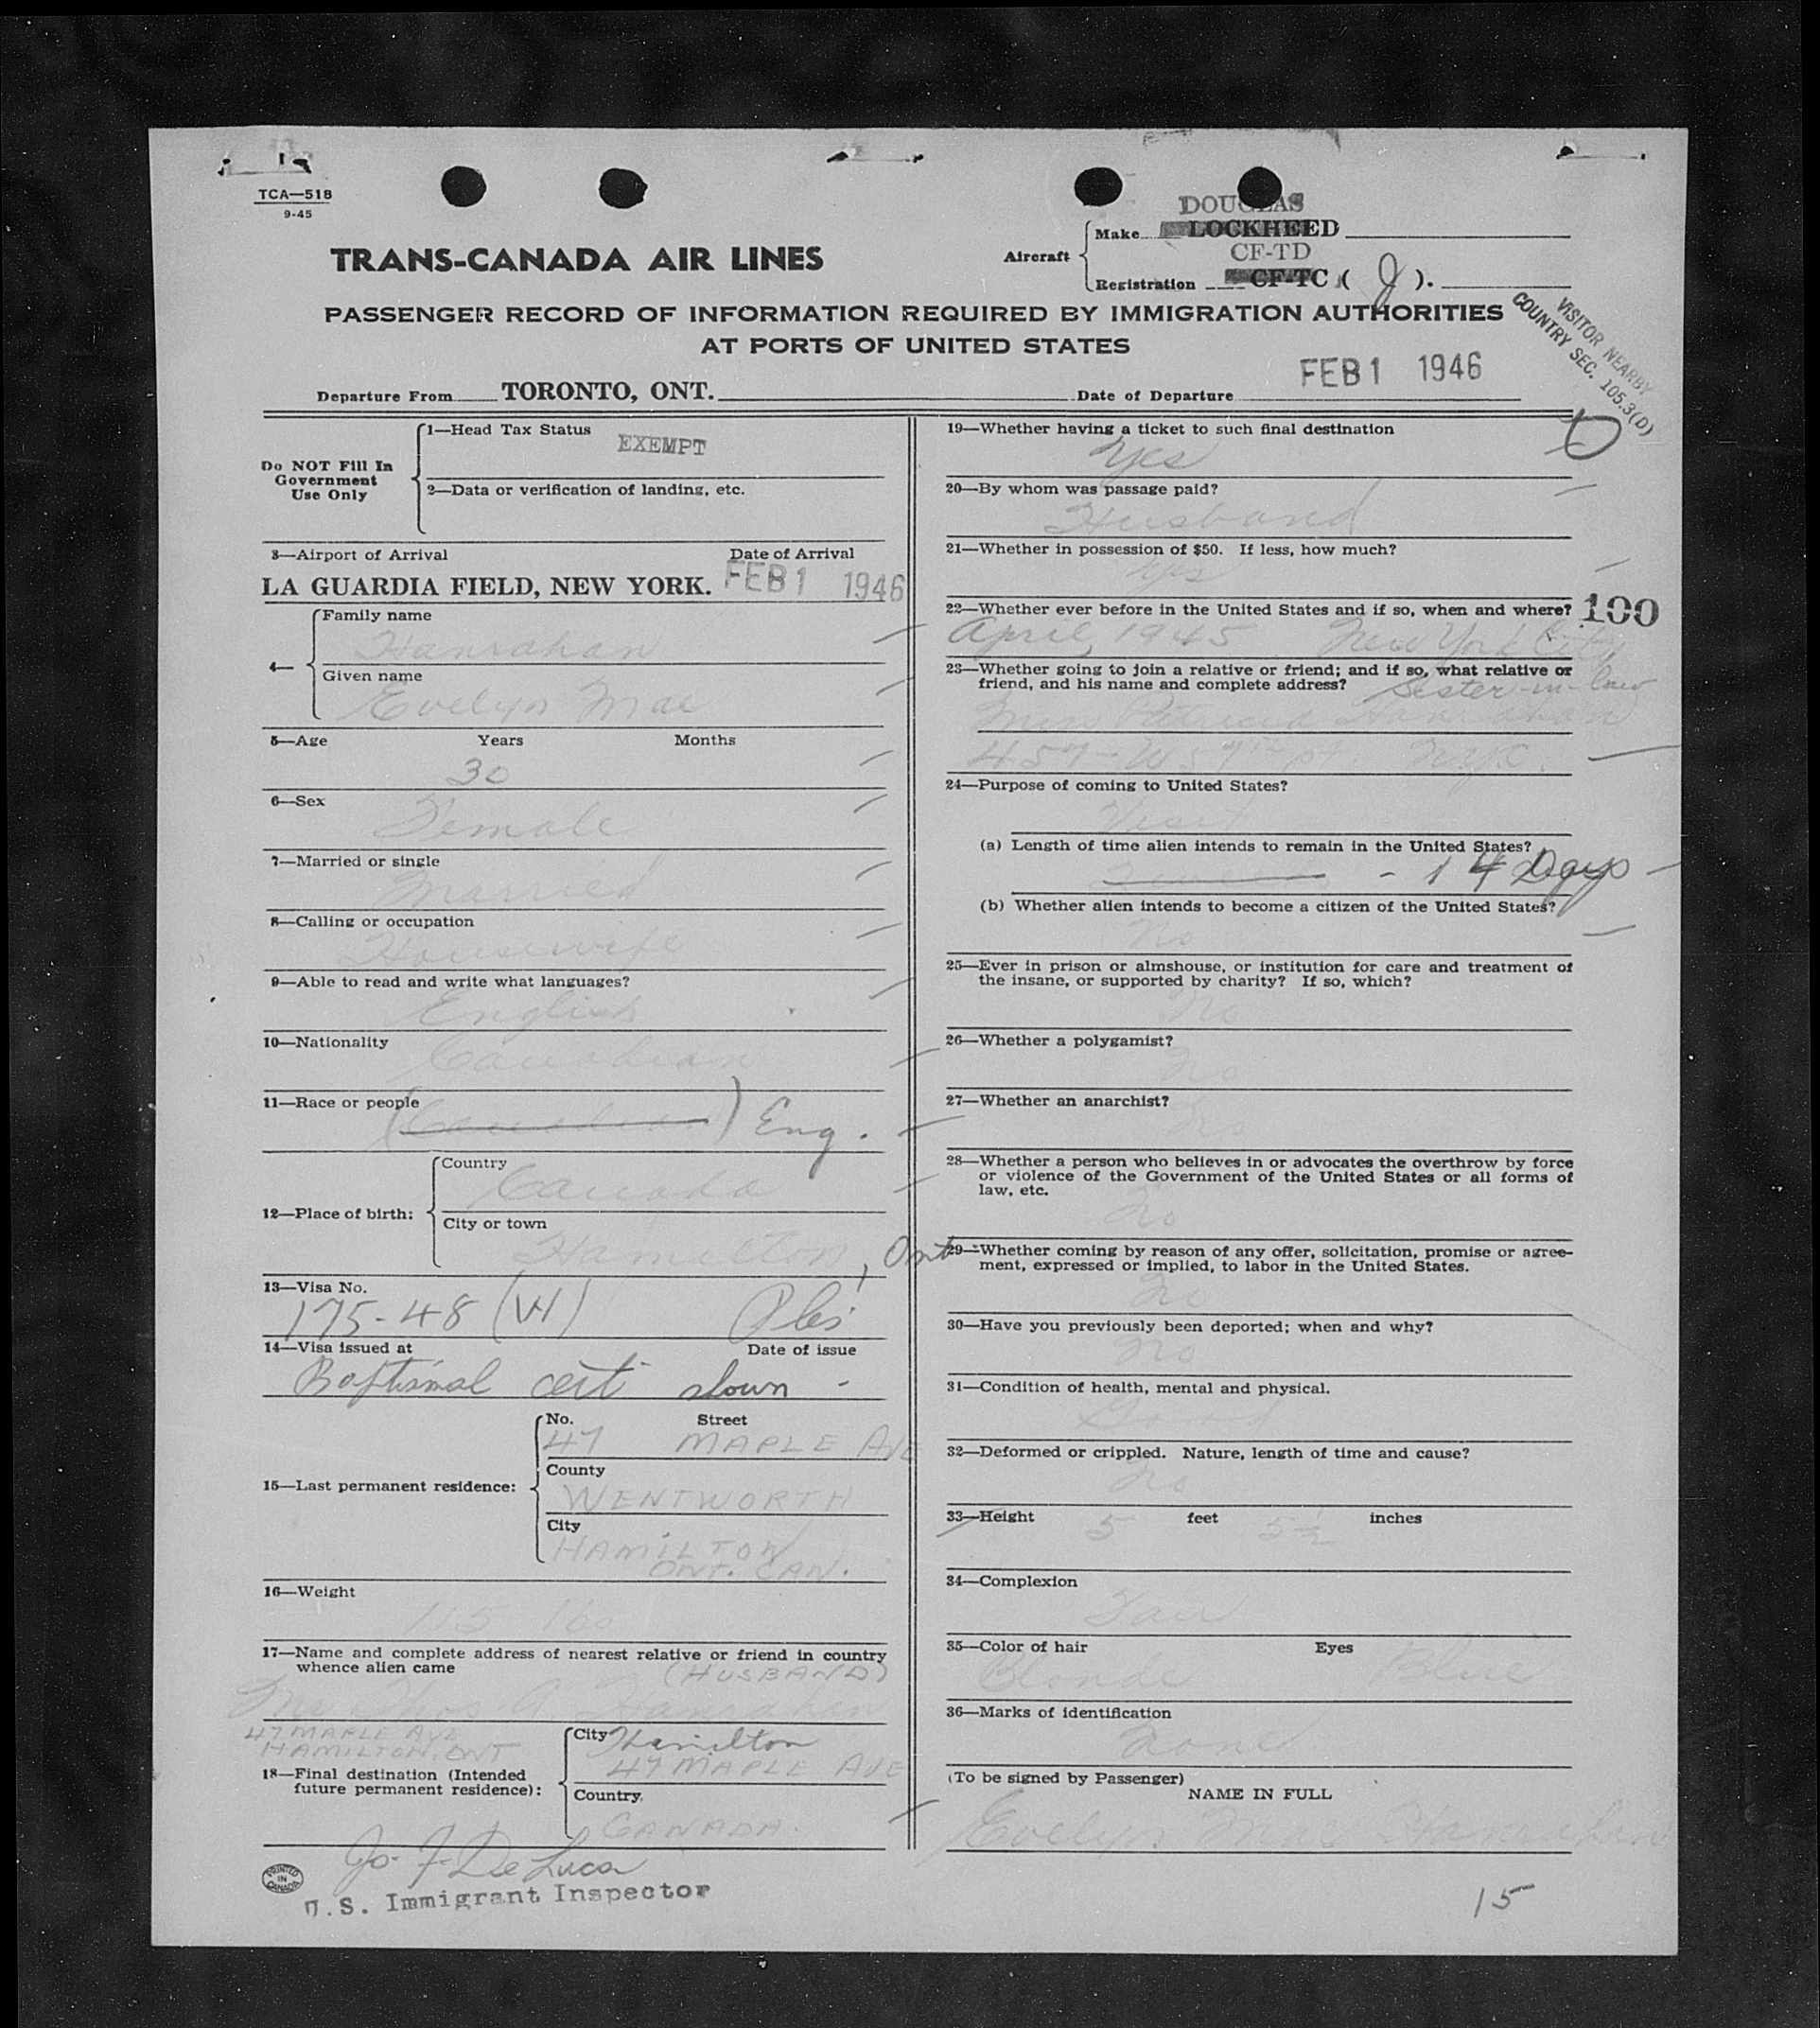 TCA—518
9-45
DOUGLAS
Aircraft
Make LOCKHEED
CF-TD
Registration CF-TC ( J ).
TRANS-CANADA AIR LINES
PASSENGER RECORD OF INFORMATION REQUIRED BY IMMIGRATION AUTHORITIES
AT PORTS OF UNITED STATES
VISITOR NEARBY
COUNTRY SEC. 105.3(D)
Departure From TORONTO, ONT. Date of Departure FEB 1 1946
Do NOT Fill In
Government
Use Only
1—Head Tax Status
EXEMPT
2—Data or verification of landing, etc.
3—Airport of Arrival Date of Arrival
LA GUARDIA FIELD, NEW YORK. FEB 1 1946
4—
Family name
Hanrahan
Given name
Evelyn Mae
5—Age Years Months
30
6—Sex
Female
7—Married or single
Married
8—Calling or occupation
Housewife
9—Able to read and write what languages?
English
10—Nationality
Canadian
11—Race or people
(Canadian) Eng.
12—Place of birth:
Country
Canada
City or town
Hamilton, Ont
13—Visa No.
175-48 (VI)
14—Visa issued at Date of issue
Baptismal cert shown -
15—Last permanent residence:
No. Street
47 MAPLE AVE
County
WENTWORTH
City
HAMILTON
ONT. CAN.
16—Weight
115 lbs
17—Name and complete address of nearest relative or friend in country
whence alien came (HUSBAND)
Mr Thos A. Hanrahan
47 MAPLE AVE
HAMILTON, ONT
18—Final destination (Intended
future permanent residence):
City Hamilton
47 MAPLE AVE
Country
CANADA.
Jo. F. De Luca
U.S. Immigrant Inspector
PRINTED
IN
CANADA
19—Whether having a ticket to such final destination
Yes
20—By whom was passage paid?
Husband
21—Whether in possession of $50. If less, how much?
Yes
22—Whether ever before in the United States and if so, when and where? 100
April, 1945 New York City
23—Whether going to join a relative or friend; and if so, what relative or
friend, and his name and complete address? Sister-in-law
Miss Patricia Hanrahan
457-W 57th St. N.Y.C.
24—Purpose of coming to United States?
Visit
(a) Length of time alien intends to remain in the United States?
- 14 Days
(b) Whether alien intends to become a citizen of the United States?
No
25—Ever in prison or almshouse, or institution for care and treatment of
the insane, or supported by charity? If so, which?
No
26—Whether a polygamist?
No
27—Whether an anarchist?
No
28—Whether a person who believes in or advocates the overthrow by force
or violence of the Government of the United States or all forms of
law, etc.
No
29—Whether coming by reason of any offer, solicitation, promise or agree-
ment, expressed or implied, to labor in the United States.
No
30—Have you previously been deported; when and why?
No
31—Condition of health, mental and physical.
Good
32—Deformed or crippled. Nature, length of time and cause?
No
33—Height 5 feet 5½ inches
34—Complexion
Fair
35—Color of hair Eyes
Blonde Blue
36—Marks of identification
None
(To be signed by Passenger)
NAME IN FULL
Evelyn Mae Hanrahan
15